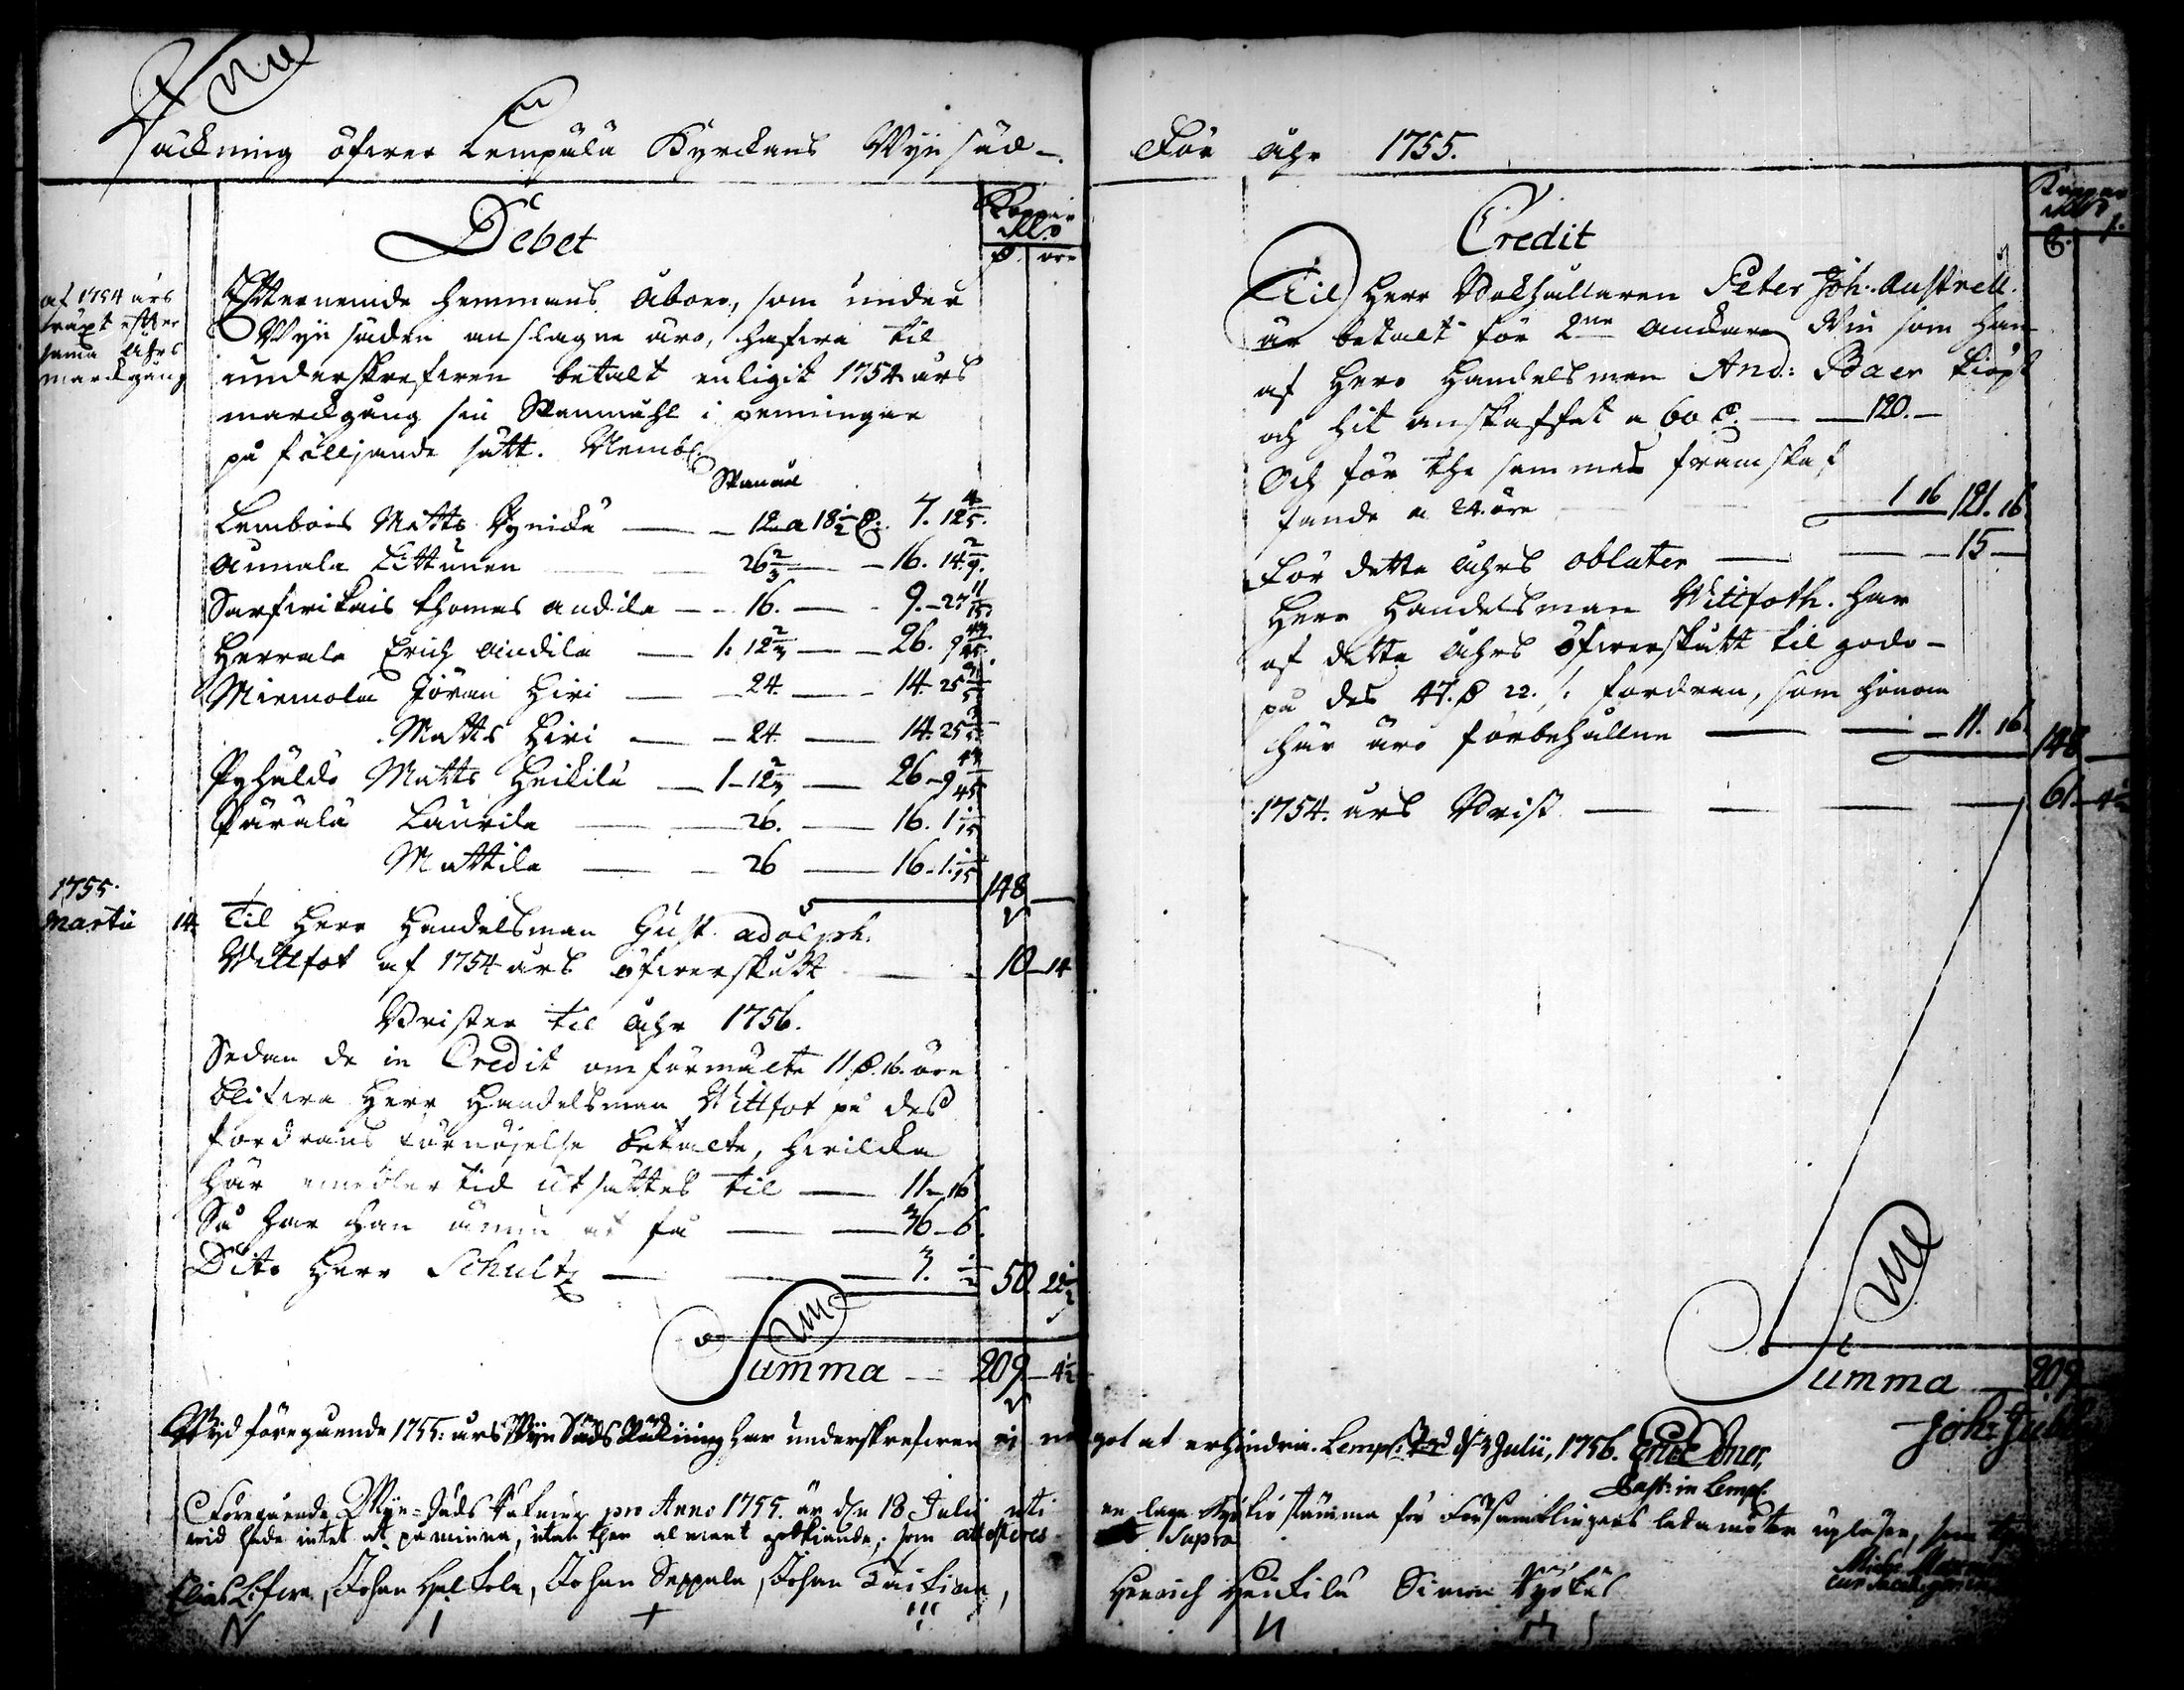 Räckning öfwer Lempälä Kyrckans Wijn säd
För Åhr 1755.
Debet
Koppar
Mt
D. öre
af 1754 års
växt efter
sama åhrs
marckgång
Efternemde hemmans Åboer, som under
Wijn säden anslagne äro, hafwa til
underskrefwen betalt enligit 1754 års
marckgång sin Spanmåhl i penningar
på följande sätt. Neml:
Spanmål
Lembois Matts 12 a 18½ D. 7. 12 4/5.
Annala Littunen 26 2/3 16. 14 2/9.
Sarfwikais Thomas Andila 16. 9. 27 11/15.
Herrala Erich Andila 1. 12 2/3 26. 9 43/45.
Miemola Jöran Hiri 24. 14. 25 3/5
Matts Hiri 24. 14. 25 3/5
Pyhäldö Matts Heikilä 1. 12 2/3 26. 9 43/45
Säräla Laurila 26. 16. 1 1/15
Mattila 26 16. 1 1/15
148
1755
Martii 14. Til Herr Handelsman Gust. Adolph.
Wittfot af 1754 års öfwerskått 10 14
Brister til Åhr 1756.
Sedan de in Credit omförmälte 11 D. 16. öre
blifwa Herr Handelsman Wittfot på des
fordrans förnöjelse betalte, hwilcka
här emedlertid utsättes til 11 16
Så har han ännu at få 36 6.
Dito Herr Schultz 3. ½ 50. 22½
Summa 209 4½
Credit
Koppar
Mt
D.
Til Herr Bokhållaren Peter Joh. Austrell.
är betalt för 2ne Anckare Win som han
af Herr Handelsman And: Baer kiöpt
och hit anskaffat a 60 D. 120.
Och för the sammas framskaf
fande a 24. öre 1 16 121. 16
För dette Åhrs oblater 15
Herr Handelsman Wittfoth. har
af dette Åhrs öfwerskått til godo
på des 47. D 22. fordran, som honom
här äro förbehållne 11. 16 148
1754. års Brist 61 4½
Summa 209
Wijd föregående 1755: års Wijn Säds Räkning har underskrefwen ei nå got at erhindra. Lempl: d. 3 Julii, 1756. Eric Ebner,
Past: in Lempl.
Föregående Wijn-Säds Räkning pro Anno 1755. är d. 18 Julii uti en laga Kyrkiostämma för Församlingens ledamöter upläsen, som
wid hade intet at påminna, utan then almänt godkiände; som attesteres ut Supra
Elias Lifwa, Johan Halkola, Johan Seppala, Johan Henrich Heikilä Simon